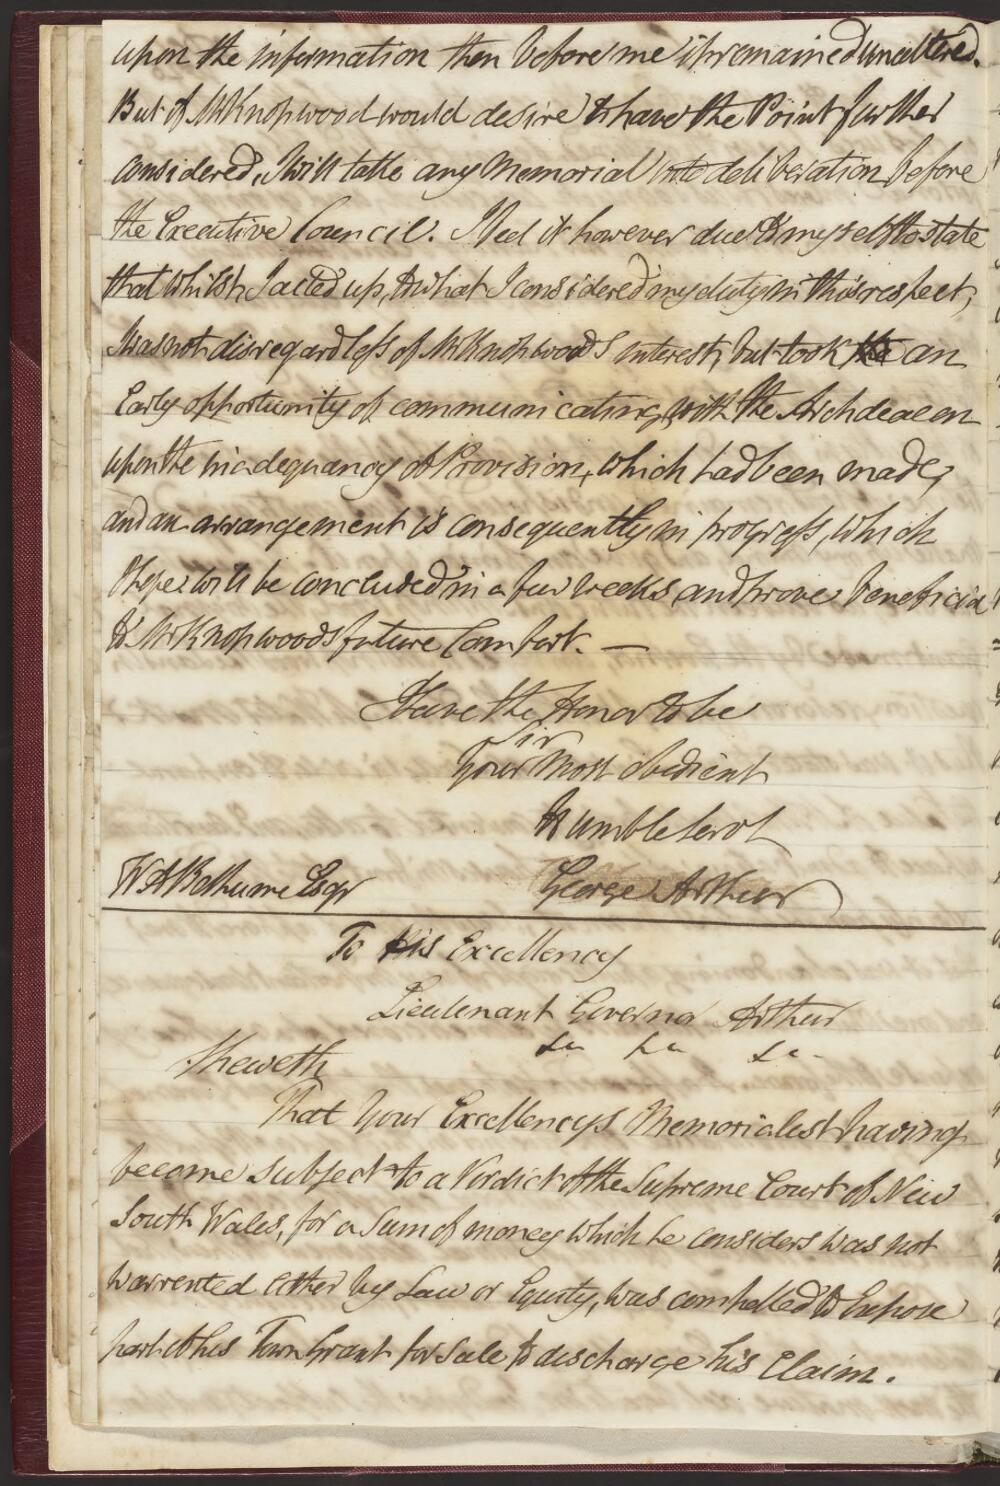 upon the information then before me it remained unaltered.
But if Mr Knopwood would desire to have the Point further
considered, I will take any Memorial into deliberation before
the Executive Council. I feel it however due to myself to state
that whilst I acted up, to what I considered my duty in this respect,
I was not disregardless of Mr Knopwoods interest, but took an
Early opportunity of communicating, with the Archdeacon
upon the inadequancy of Provision, which had been made,
and an arrangement is consequently in progress, which
I hope will be concluded in a few weeks and prove beneficial
to Mr Knopwoods future Comfort. —
I have the Honor to be
Sir
Your Most obedient
Humble Servt
George Arthur
W A Bethune Esqr
To His Excellency
Lieutenant Governor Arthur
&c &c &c
Sheweth
That Your Excellencys Memorialist having
become subject to a Verdict of the Supreme Court of New
South Wales, for a Sum of money which he considers was not
warrented either by Law or Equity, was compelled to Expose
part of his Town Grant for Sale to discharge his Claim.